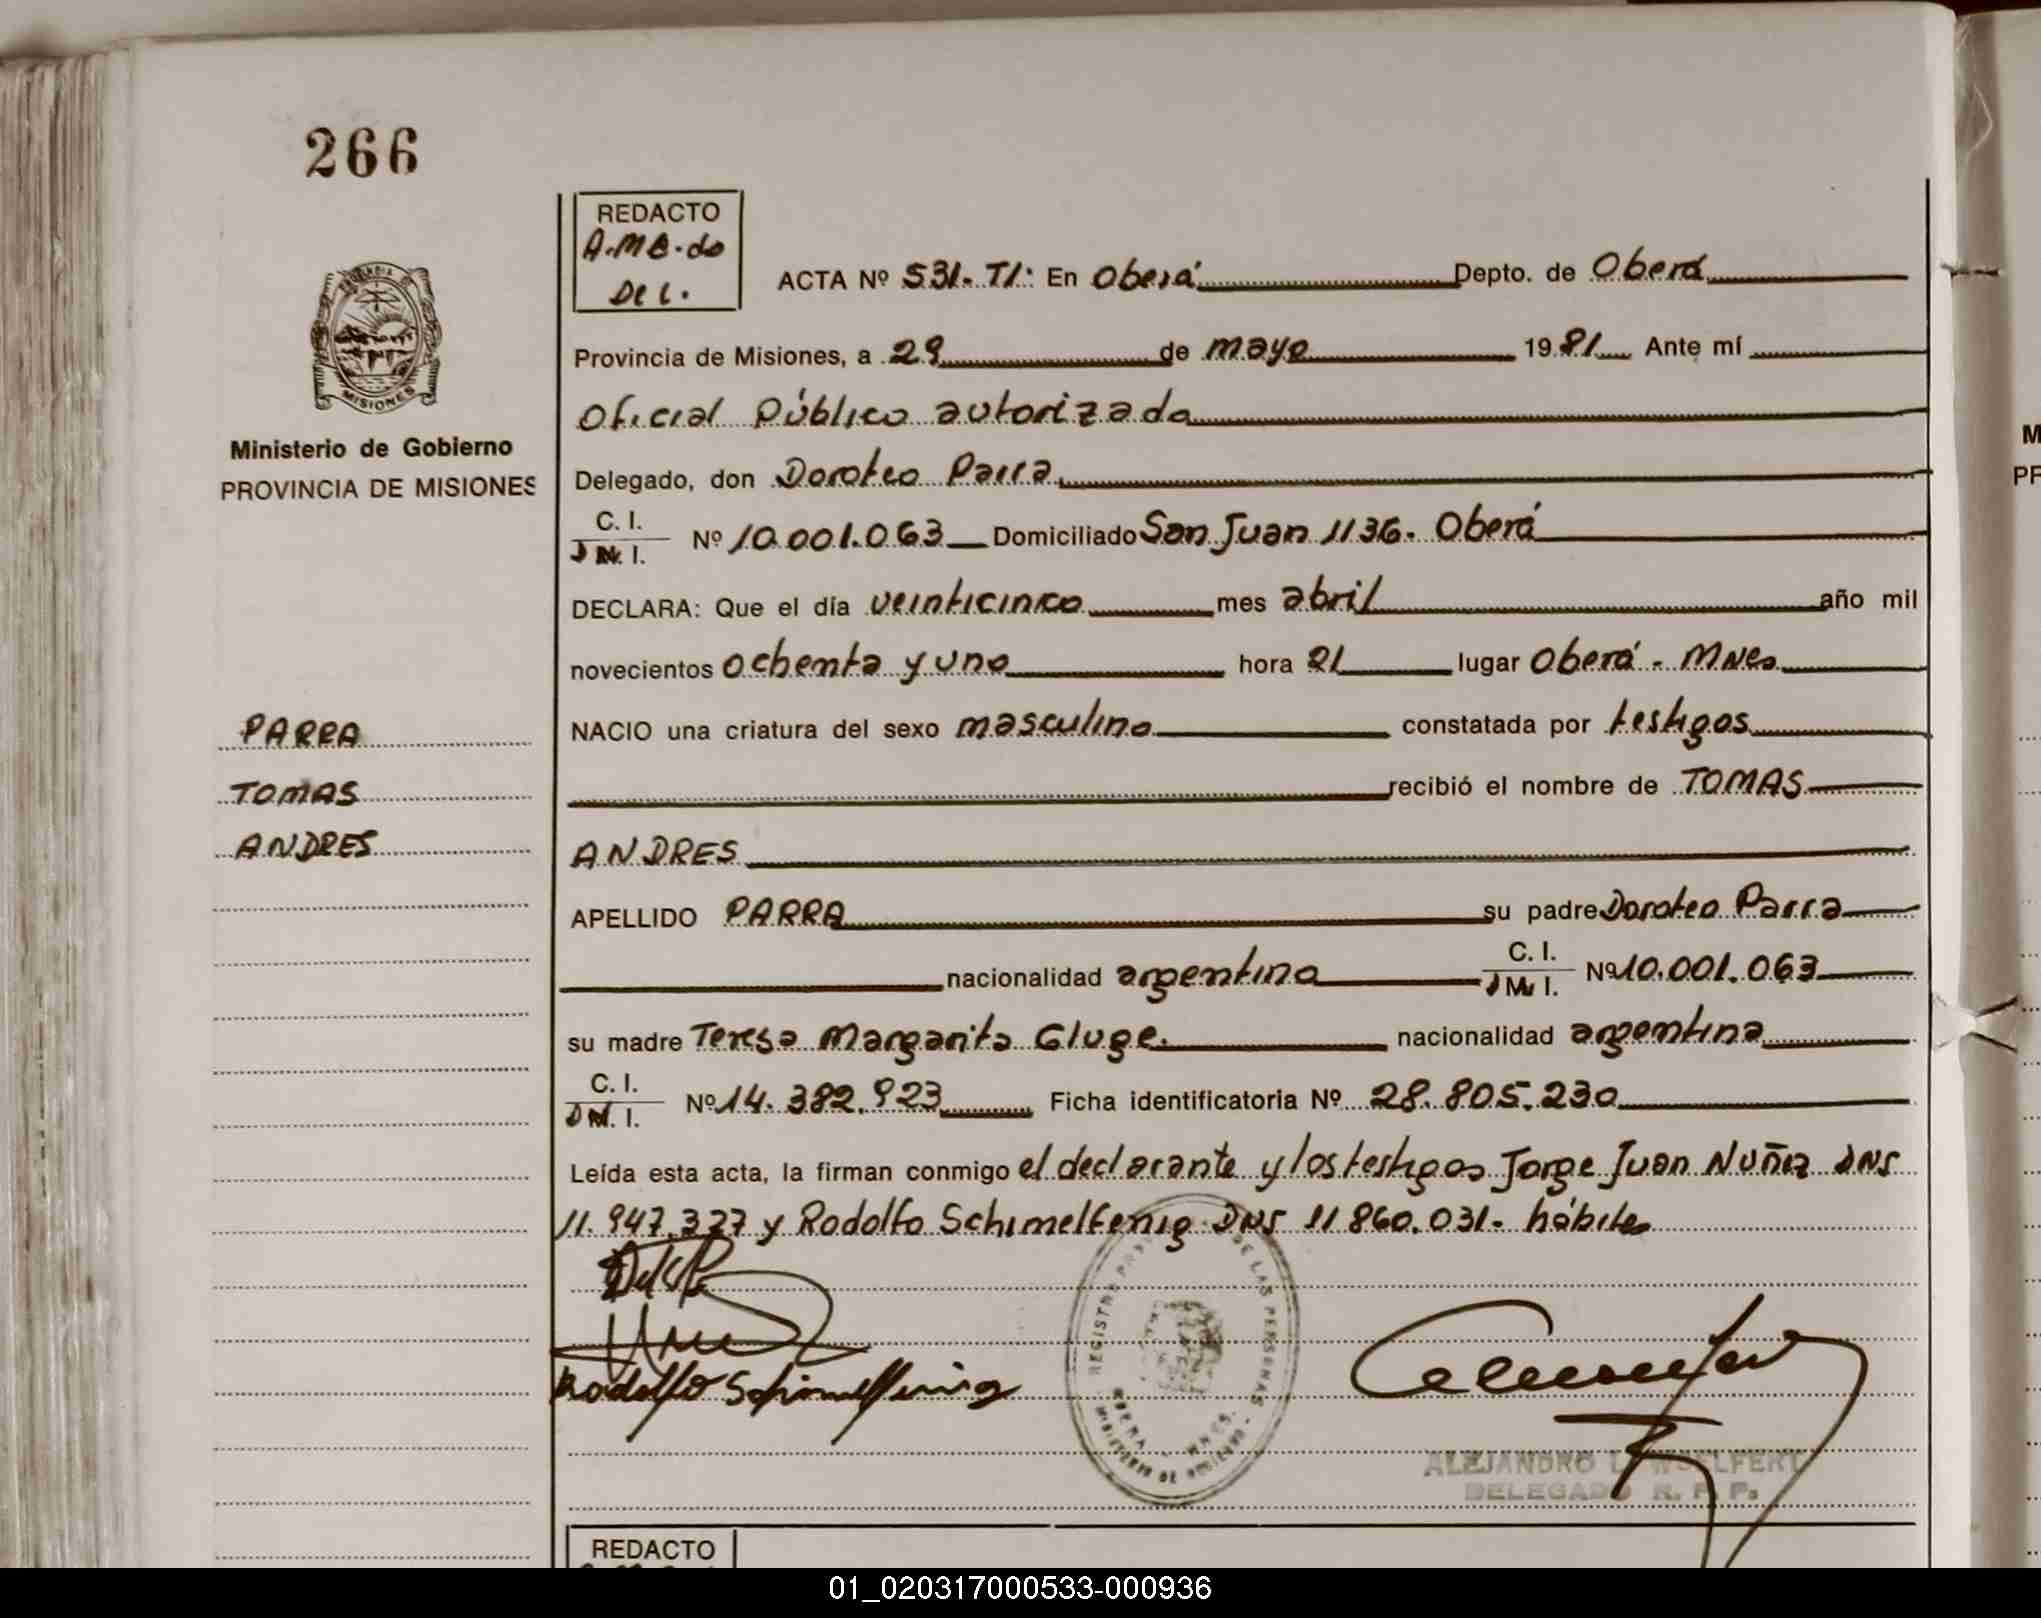 266
REDACTO
A.M.B. do
Del.
ACTA Nº 531. TI: En Oberá Depto. de Oberá
Provincia de Misiones, a 29 de mayo 1981 Ante mí
Oficial Público autorizado
MISIONES
Ministerio de Gobierno
PROVINCIA DE MISIONES
Delegado, don Doroteo Parra
C. I.
D N. I. Nº 10.001.063 Domiciliado San Juan 1136. Oberá
DECLARA: Que el día veinticinco mes abril año mil
novecientos ochenta y uno hora 21 lugar Oberá - Mnes
PARRA
TOMAS
ANDRES
NACIO una criatura del sexo masculino constatada por testigos
recibió el nombre de TOMAS
ANDRES
APELLIDO PARRA su padre Doroteo Parra
nacionalidad argentina C. I.
D M. I. Nº 10.001.063
su madre Teresa Margarita Gluge. nacionalidad argentina
C. I.
D N. I. Nº 14.382.923 Ficha identificatoria Nº 28.805.230
Leída esta acta, la firman conmigo el declarante y los testigos Jorge Juan Nuñez DNI
11.947.327 y Rodolfo Schimelfenig DNI 11860.031. hábiles
Rodolfo Schimelfenig
REGISTRO DE LAS PERSONAS
MINISTERIO DE GOBIERNO
OBERA - MNES.
ALEJANDRO
DELEGADO R. P. P.
REDACTO
01_020317000533-000936